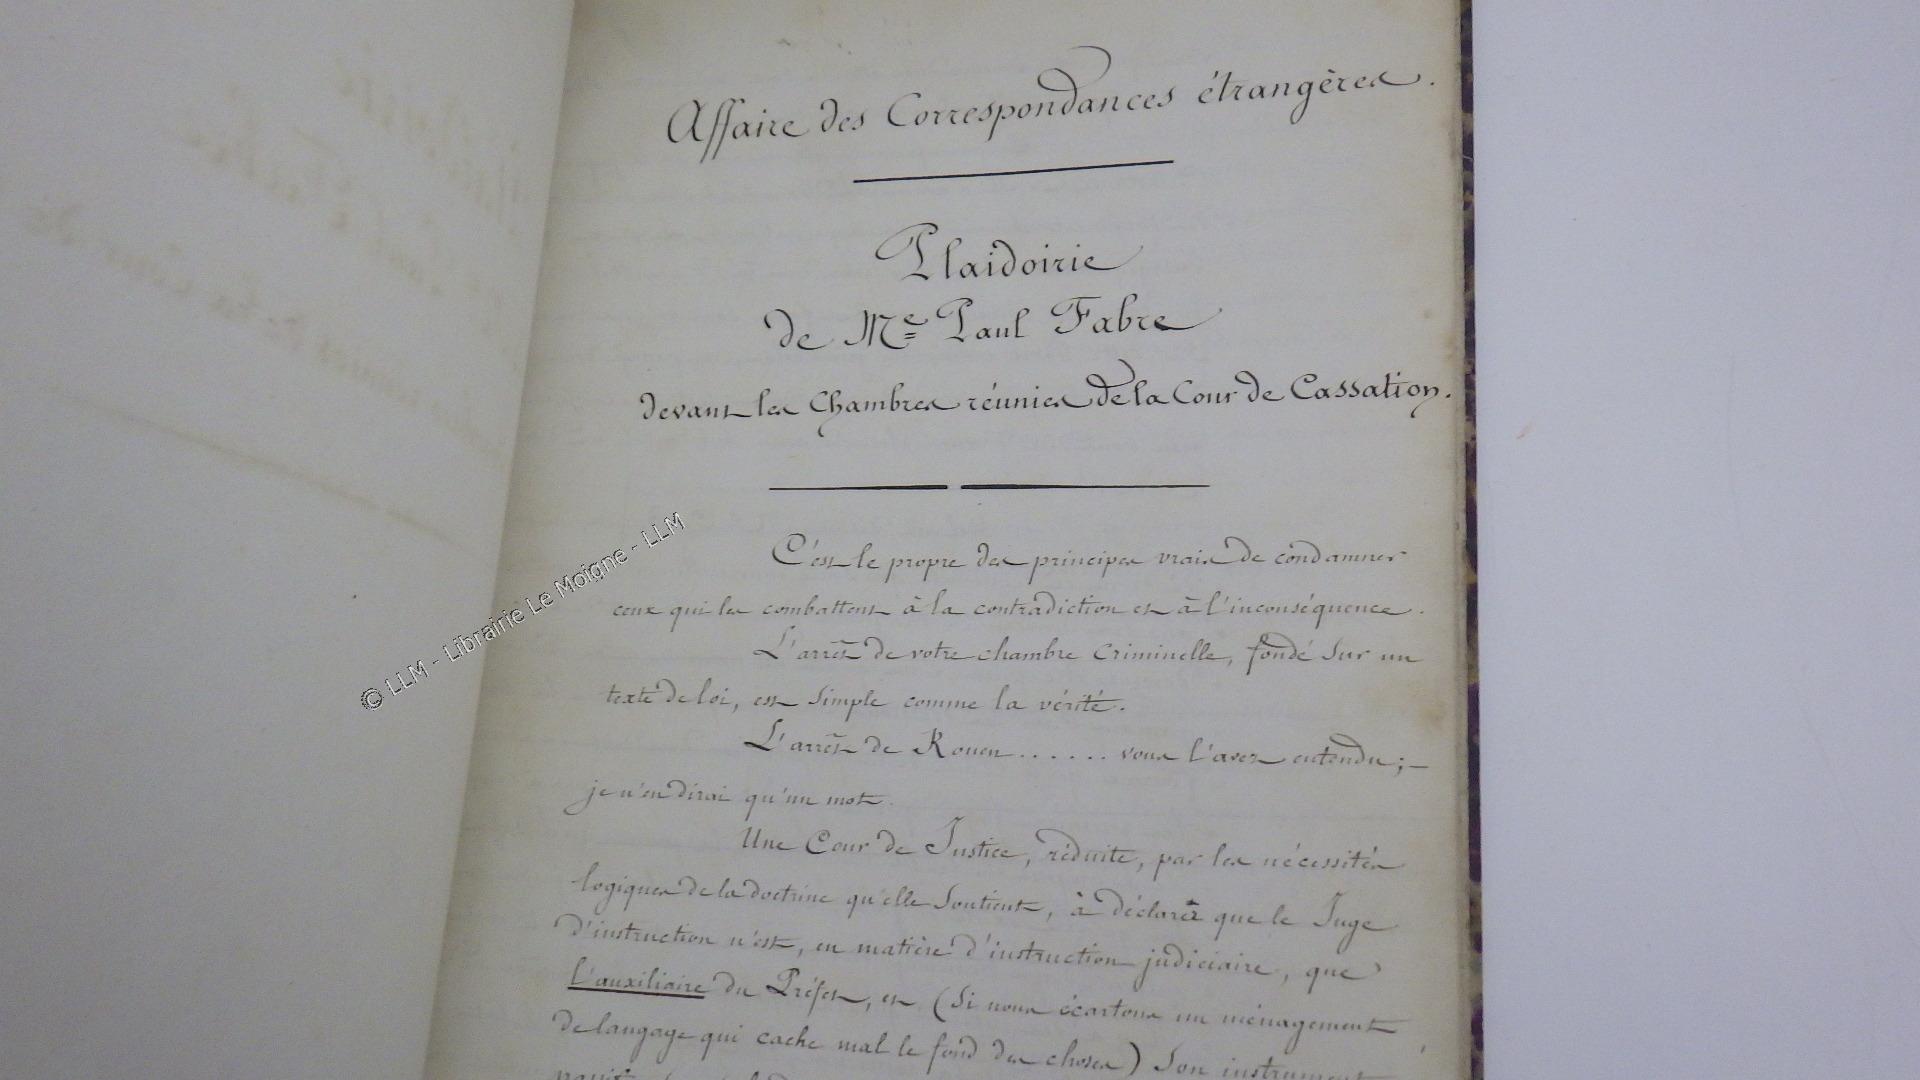 Affaire des Correspondances étrangères.
Plaidoirie
de Me Paul Fabre
devant les Chambres réunies de la Cour de Cassation.
C'est le propre des principes vrais de condamner
ceux qui les combattent à la contradiction et à l'inconséquence.
L'arrêt de votre chambre Criminelle, fondé sur un
texte de loi, est simple comme la vérité.
L'arrêt de Rouen...... vous l'avez entendu; —
je n'en dirai qu'un mot.
Une Cour de Justice, réduite, par les nécessités
logiques de la doctrine qu'elle soutient, à déclarer que le Juge
d'instruction n'est, en matière d'instruction judiciaire, que
l'auxiliaire du Préfet, et (si nous écartons un ménagement
de langage qui cache mal le fond des choses) son instrument
© LLM - Librairie Le Moigne - LLM